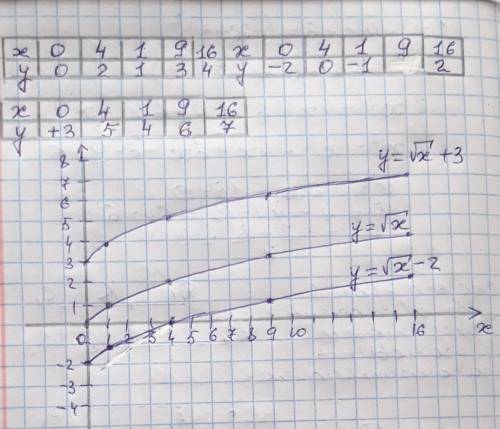 x 0 4 1 9 16 x 0 4 1 9 16
y 0 2 1 3 4 y -2 0 -1 2
x 0 4 1 9 16
y +3 5 4 6 7
y=√x+3
y=√x
y=√x-2
8
7
6
5
4
3
2
1
0 1 2 3 4 5 6 7 8 9 10 16 x
-2
-3
-4